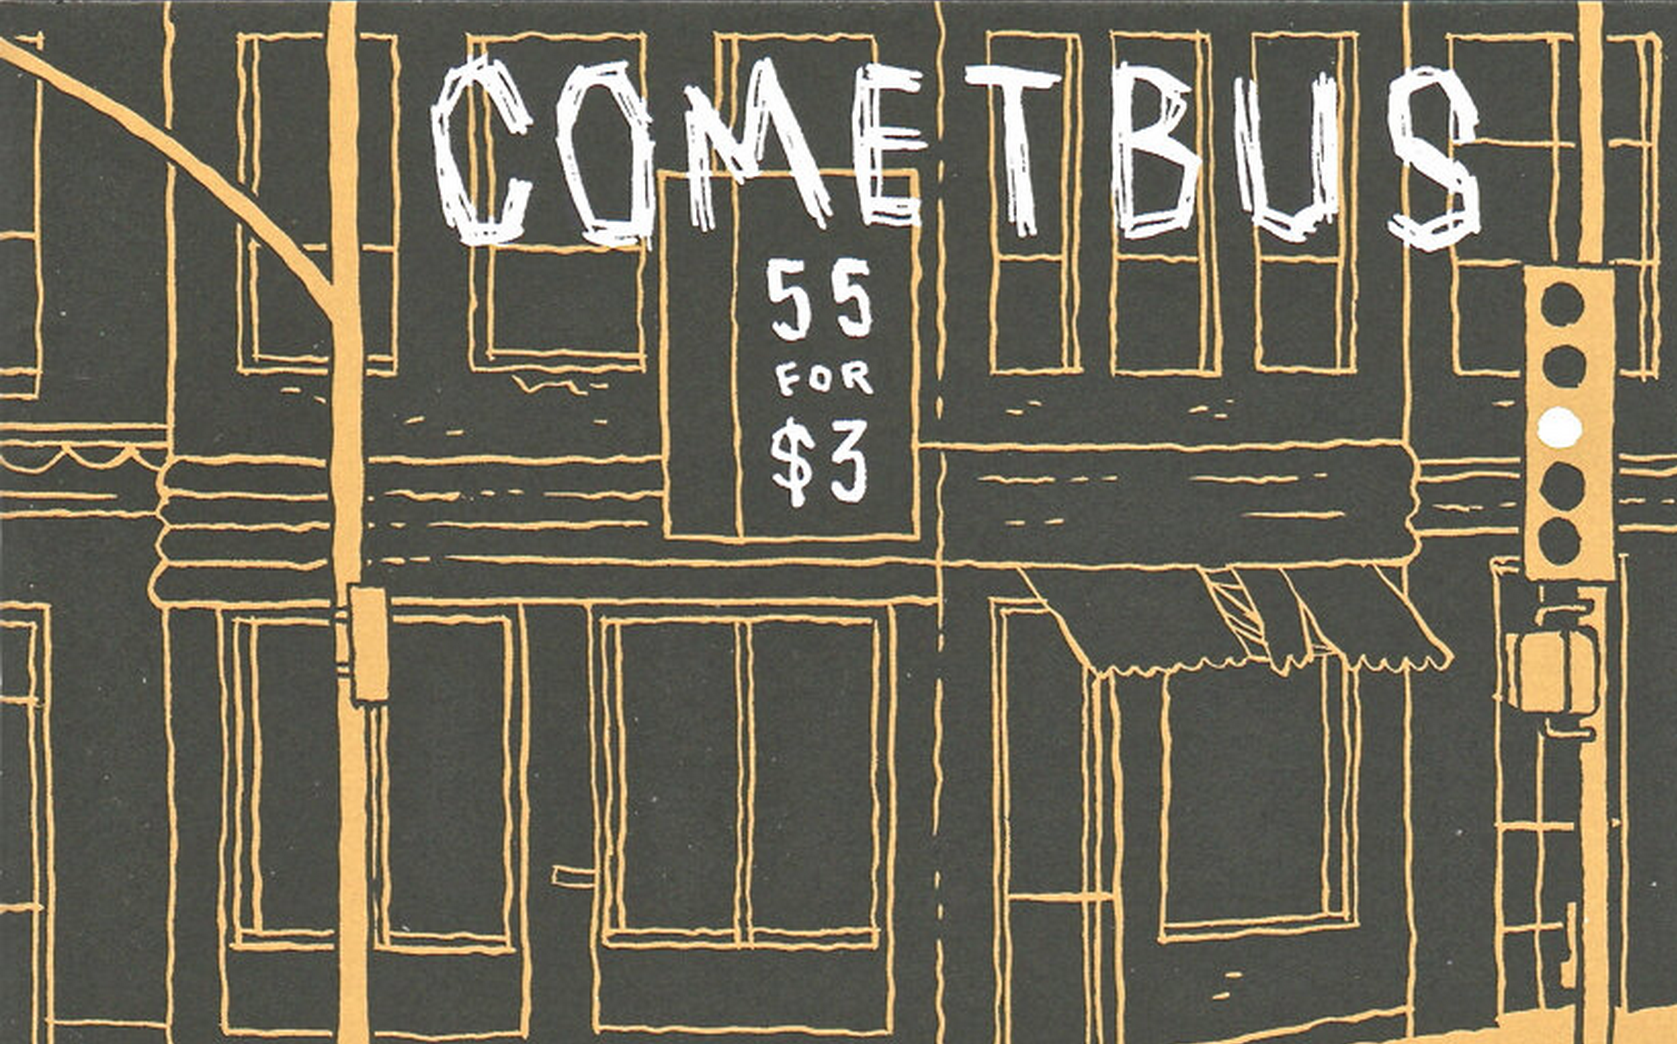 COMETBUS
55
FOR
$3